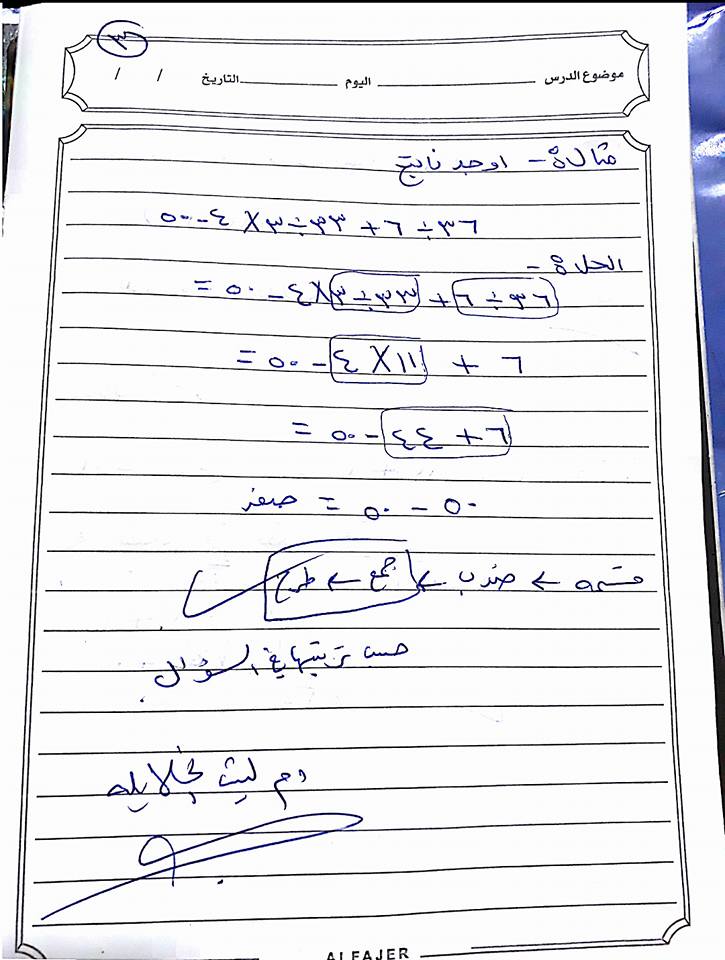 ٣
موضوع الدرس اليوم التاريخ / /
مثال :- اوجد ناتج
٣٦ ÷ ٦ + ٣٣ ÷ ٣ × ٤ - ٥٠
الحل :-
٣٦ ÷ ٦ + ٣٣ ÷ ٣ × ٤ - ٥٠ =
٦ + ١١ × ٤ - ٥٠ =
٦ + ٤٤ - ٥٠ =
٥٠ - ٥٠ = صفر
قسمه ← ضرب ← جمع ← طرح
حسب ترتيبها في السؤال
ALFAJER